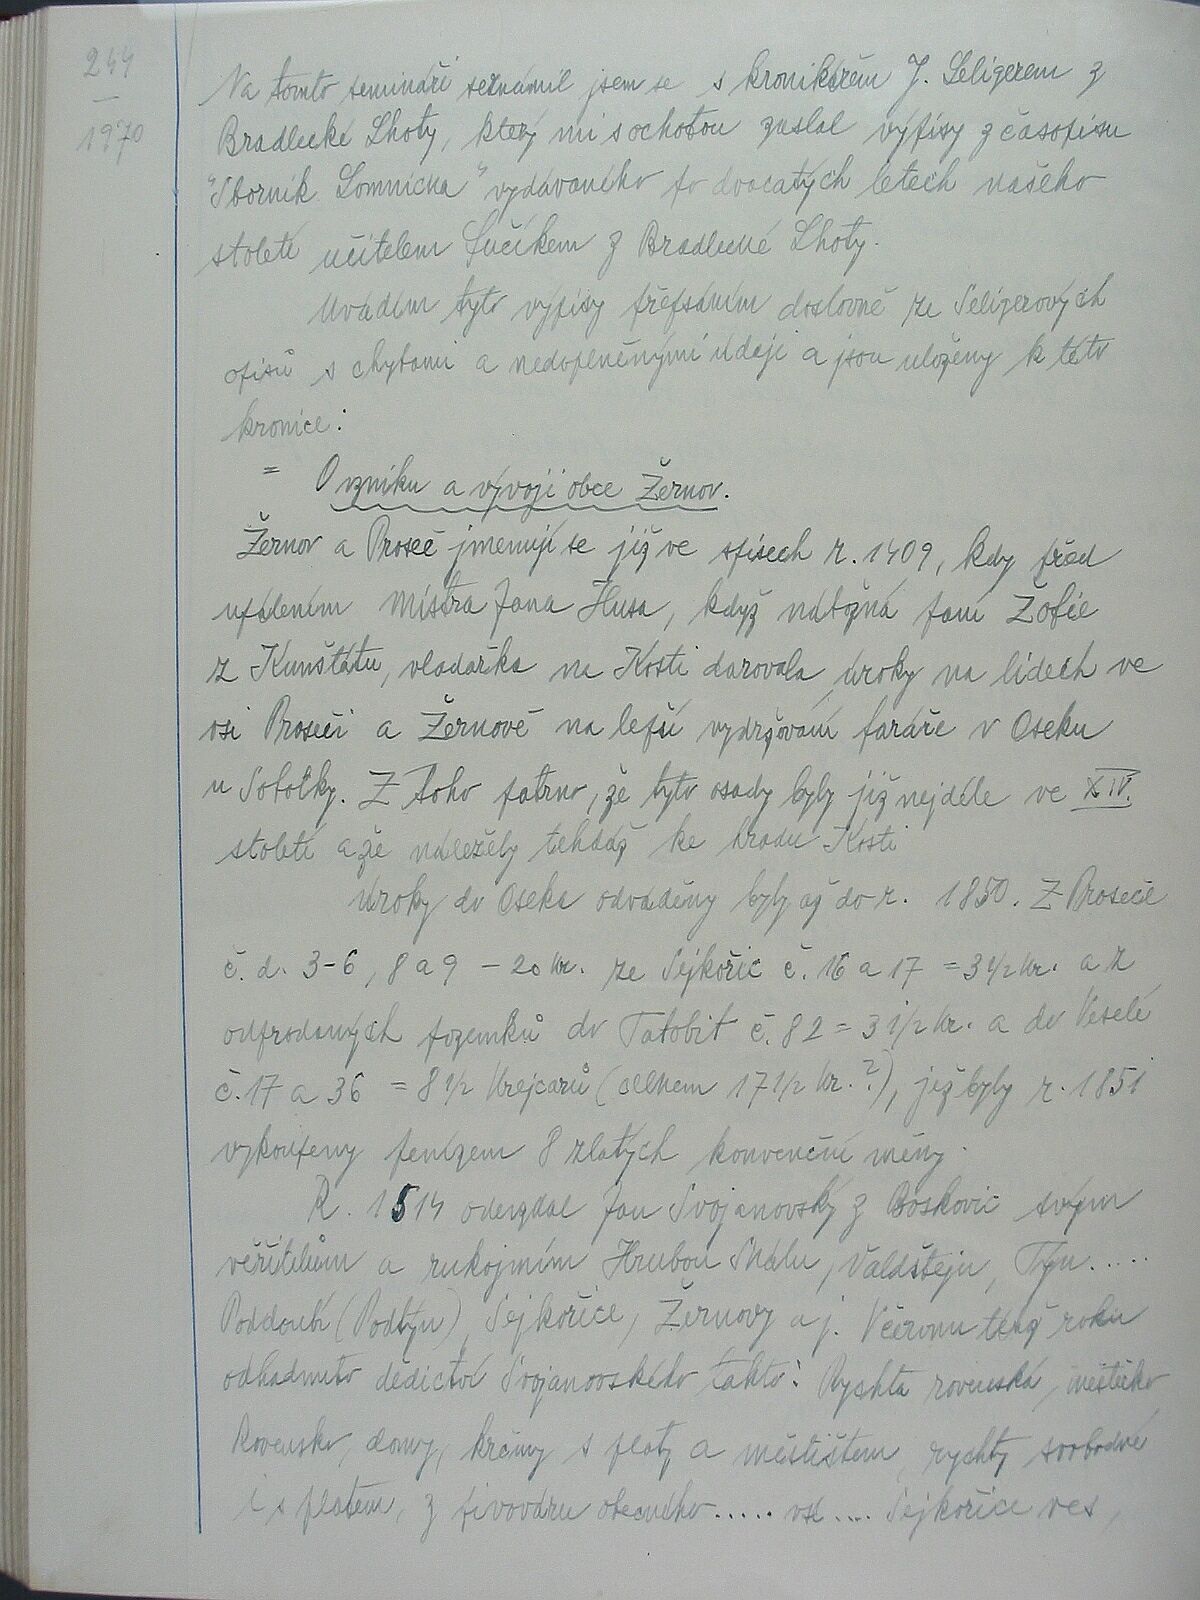 244
—
1970
Na tomto semináři seznámil jsem se s kronikářem J. Seligerem z
Bradlecké Lhoty, který mi s ochotou zaslal výpisy z časopisu
"Sborník Lomnicka" vydávaného po dvacatých letech našeho
století učitelem Fučíkem z Bradlecké Lhoty.
Uvádím tyto výpisy přepsáním doslovně ze Seligerových
opisů s chybami a nedoplněnými údaji a jsou uloženy k této
kronice:
= O vzniku a vývoji obce Žernov.
Žernov a Proseč jmenují se již ve spisech r. 1409, kdy před
upálením mistra Jana Husa, když nábožná paní Žofie
z Kunštátu, vladařka na Kosti darovala úroky na lidech ve
vsi Proseči a Žernově na lepší vydržování faráře v Oseku
u Sobotky. Z toho patrno, že tyto osady byly již nejdéle ve XIV.
století a že náležely tehdáž ke hradu Kosti
Úroky do Oseka odváděny byly až do r. 1850. Z Proseče
č. d. 3-6, 8 a 9 - 20 kr. ze Sejkořic č. 16 a 17 = 3 1/2 kr. a z
odprodaných pozemků do Tatobit č. 82 = 3 1/2 kr. a do Veselé
č. 17 a 36 = 8 1/2 krejcarů (celkem 17 1/2 kr. ?), jež byly r. 1851
vykoupeny penízem 8 zlatých konvenční měny.
R. 1514 odevzdal Jan Svojanovský z Boskovic svým
věřitelům a rukojmím Hrubou Skálu, Valdštejn, Týn.....
Poddoubí (Podtýn), Sejkořice, Žernovy a j. V červnu téhož roku
odhadnuto dědictví Svojanovského takto: Rychta rovenská, městečko
Rovensko, domy, krčmy s platy a městištem, rychty svobodné
i s platem, z pivováru obecného..... ves .... Sejkořice ves,